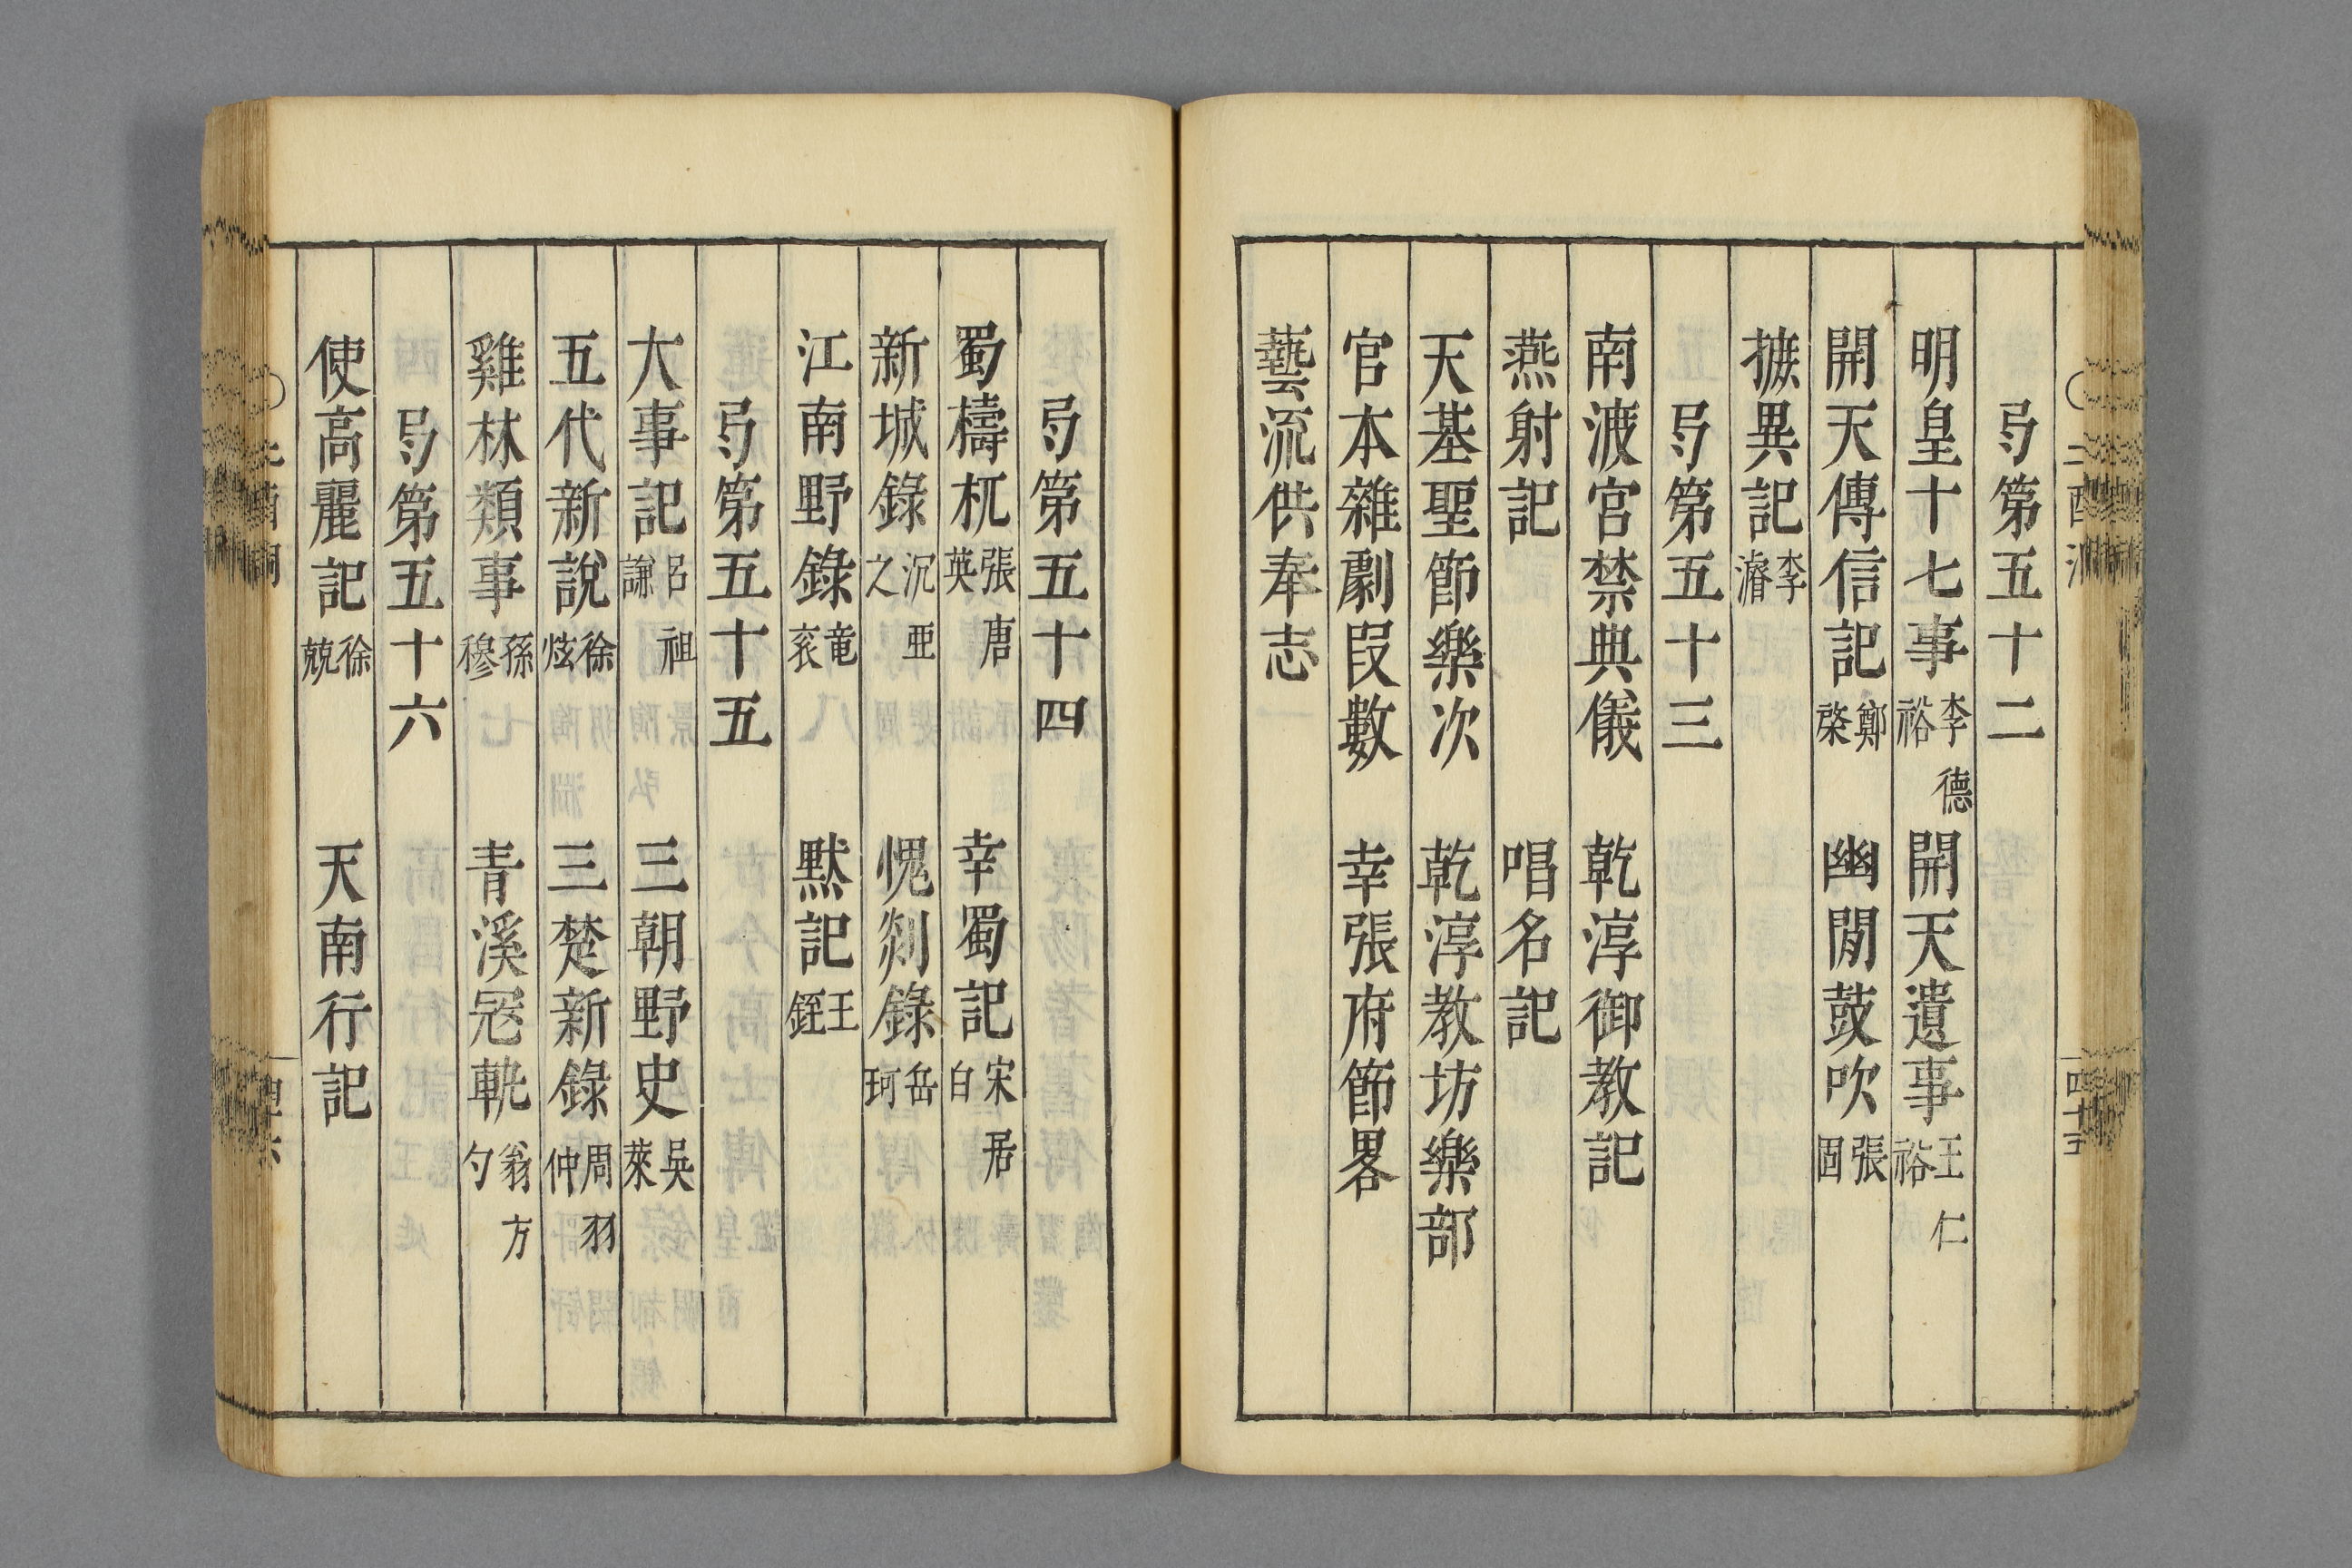 弓第五十二
明皇十七事 李德裕 開天遺事 王仁裕
開天傳信記 鄭棨 幽閒鼓吹 張固
摭異記 李濬
弓第五十三
南渡宮禁典儀 乾淳御教記
燕射記 唱名記
天基聖節樂次 乾淳教坊樂部
官本雜劇叚數 幸張府節畧
藝流供奉志
弓第五十四
蜀檮杌 張唐英 幸蜀記 宋居白
新城錄 沉亜之 愧剡錄 岳珂
江南野錄 竜袞 默記 王銍
弓第五十五
大事記 呂祖謙 三朝野史 吳萊
五代新說 徐炫 三楚新錄 周羽仲
雞林類事 孫穆 青溪冦軌 方勺翁
弓第五十六
使高麗記 徐兢 天南行記